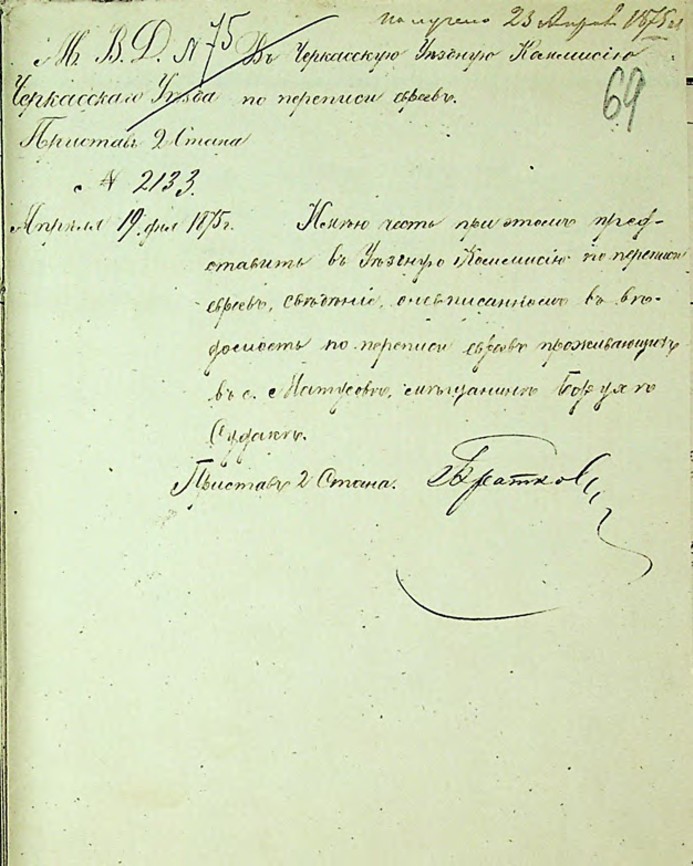 получено 23 Апрѣл 1875 г
М. В. Д. № 75 Въ Черкасскую Уѣздную Коммисію
Черкасскаго Уѣзда по переписи евреевъ.
69
Приставъ 2 Стана
№ 2133.
Апрѣля 19 дня 1875 г. Имѣю честь при этомъ пред-
ставить въ Уѣздную Коммисію по переписи
евреевъ, свѣденіе, о невписанномъ въ вѣ-
домость по переписи евреевъ проживающихъ
въ с. Матусовѣ, мѣщанинѣ Борухѣ
Судакѣ.
Приставъ 2 Стана.